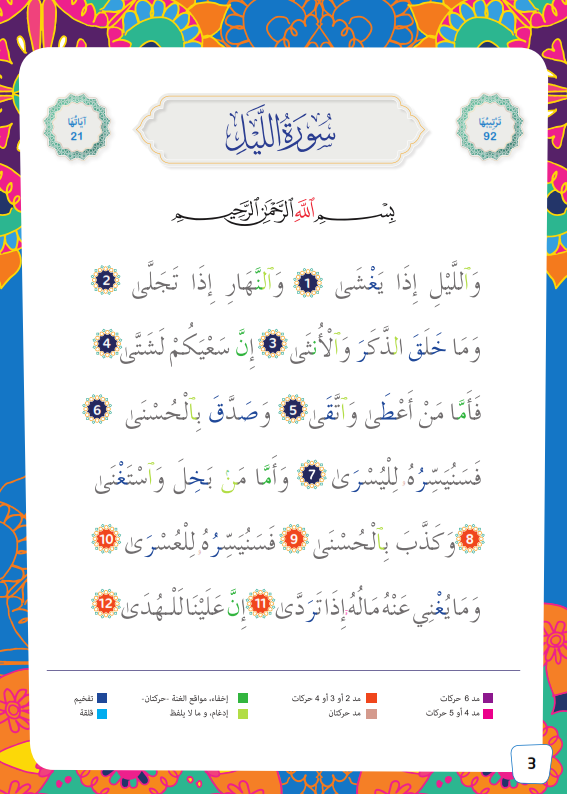 تَرْتِيبُهَا
92
سُورَةُ اللَّيْلِ
آيَاتُهَا
21
بِسْمِ ٱللَّهِ ٱلرَّحْمَٰنِ ٱلرَّحِيمِ
وَٱللَّيْلِ إِذَا يَغْشَىٰ 1 وَٱلنَّهَارِ إِذَا تَجَلَّىٰ 2
وَمَا خَلَقَ الذَّكَرَ وَٱلْأُنثَىٰ 3 إِنَّ سَعْيَكُمْ لَشَتَّىٰ 4
فَأَمَّا مَنْ أَعْطَىٰ وَٱتَّقَىٰ 5 وَصَدَّقَ بِٱلْحُسْنَىٰ 6
فَسَنُيَسِّرُهُۥ لِلْيُسْرَىٰ 7 وَأَمَّا مَنۢ بَخِلَ وَٱسْتَغْنَىٰ
8 وَكَذَّبَ بِٱلْحُسْنَىٰ 9 فَسَنُيَسِّرُهُۥ لِلْعُسْرَىٰ 10
وَمَا يُغْنِي عَنْهُ مَالُهُۥٓ إِذَا تَرَدَّىٰ 11 إِنَّ عَلَيْنَا لَلْهُدَىٰ 12
مد 6 حركات
مد 2 أو 3 أو 4 حركات
إخفاء، مواقع الغنة -حركتان-
تفخيم
مد 4 أو 5 حركات
مد حركتان
إدغام، و ما لا يلفظ
قلقة
3